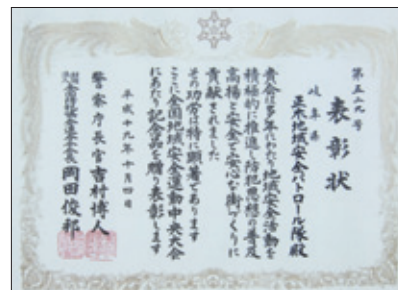 第五二九号
表彰状
岐阜県
正木地域安全パトロール隊殿
貴会は多年にわたり地域安全活動を
積極的に推進し防犯思想の普及
高揚と安全で安心な街づくりに
貢献されました
その功労は特に顕著であります
ここに全国地域安全運動中央大会
にあたり記念品を贈り表彰します
平成十九年十月四日
警察庁長官吉村博人
岡田俊邦